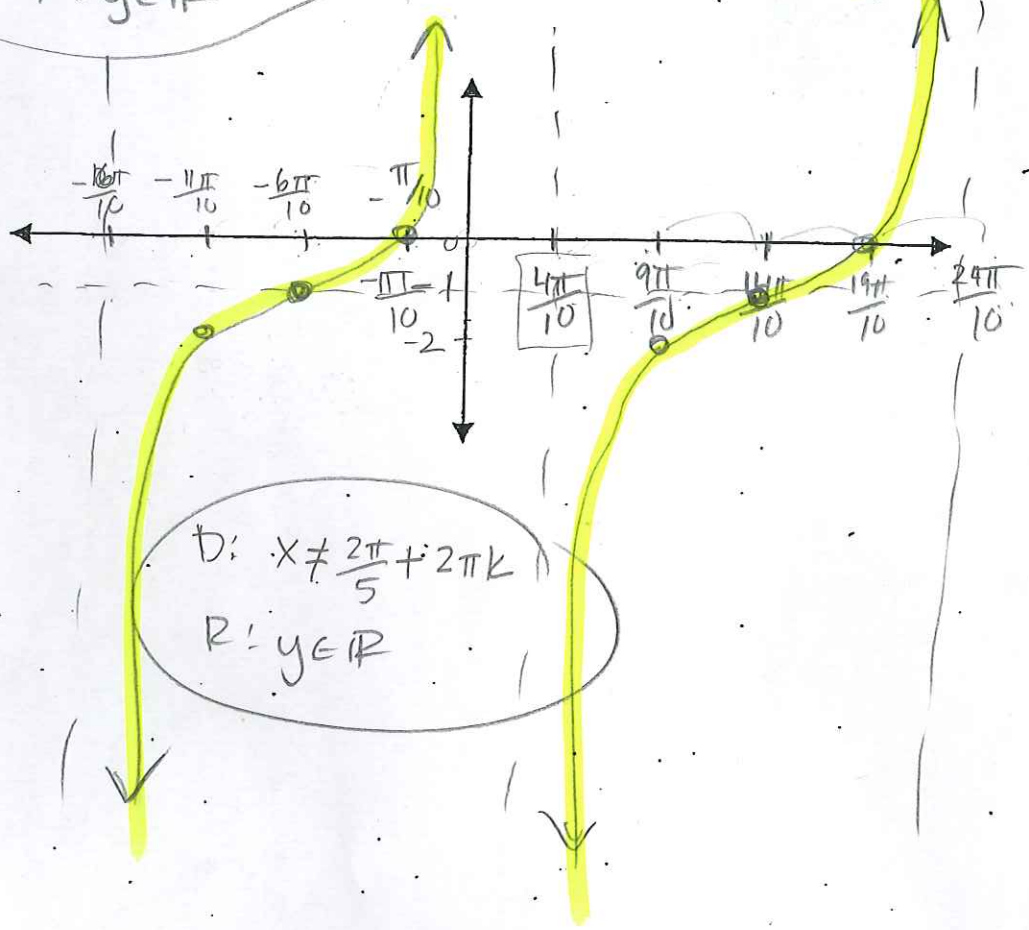 y∈ℝ
-16π/10 -11π/10 -6π/10 -π/10
0
-π/10 -1 4π/10 9π/10 14π/10 19π/10 24π/10
-2
D: x ≠ 2π/5 + 2πk
R: y∈ℝ